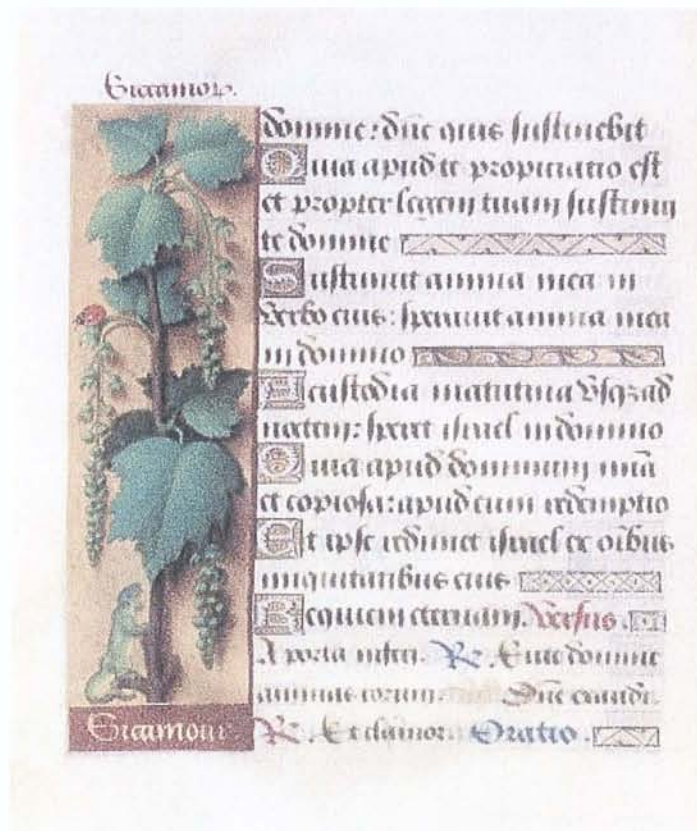 Siccamor.
domine: dñe quis sustinebit
Quia apud te propitiatio est
et propter legem tuam sustinui
te domine
Sustinuit anima mea in
verbo eius: speravit anima mea
in domino
A custodia matutina usqȝ ad
noctem: speret israel in domino
Quia apud dominum miã
et copiosa: apud eum redemptio
Et ipse redimet israel ex oĩbus
iniquitatibus eius
Requiem eternam. Versus.
A porta inferi. R. Erue domine
animas eorum. Dñe exaudi
Sicamour
R. Et clamor. Oratio.